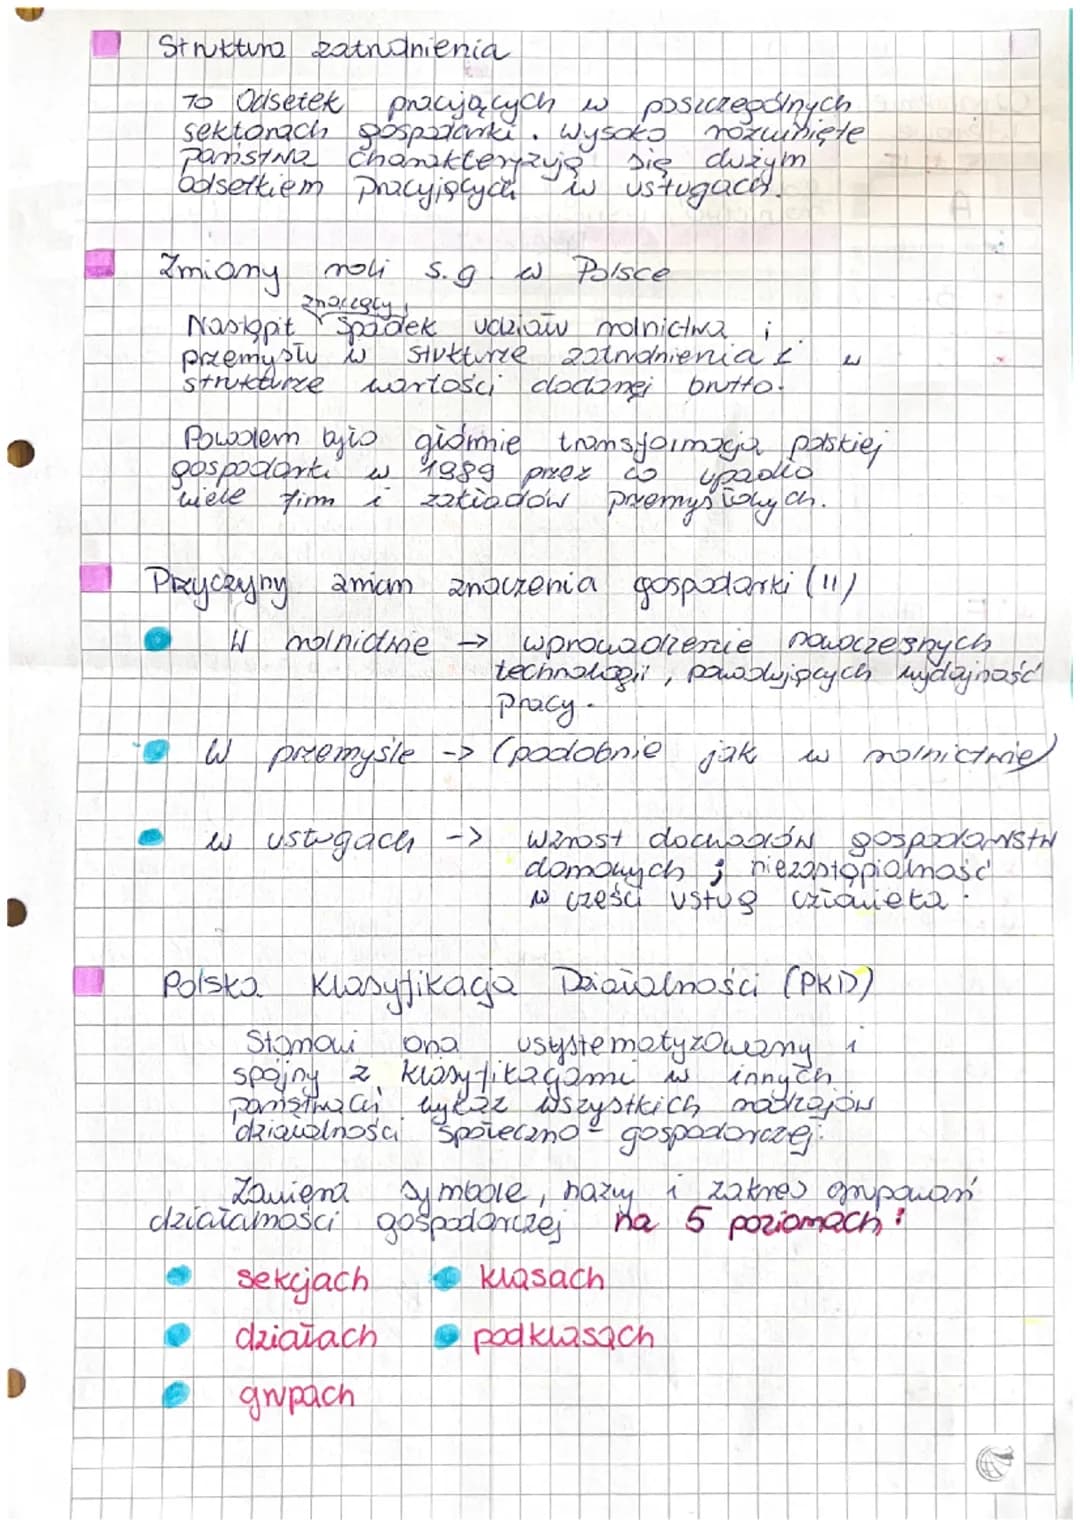 Struktura zatrudnienia
To Odsetek pracujących w poszczególnych
sektorach gospodarki. Wysoko rozwinięte
państwa charakteryzują się dużym
odsetkiem pracujących w usługach.
Zmiany roli s.g. w Polsce
znaczący
Nastąpił spadek udziału rolnictwa i
przemysłu w stukturze zatrudnienia i w
strukturze wartości dodanej brutto.
Powodem było głównie transformacja polskiej
gospodarki w 1989 przez co upadło
wiele firm i zakładów przemysłowych.
Przyczyny zmian znaczenia gospodarki (11)
W rolnictwie -> wprowadzenie nowoczesnych
technologii, powodujących wydajność
pracy.
W przemyśle -> (podobnie jak w rolnictwie)
w usługach -> wzrost dochodów gospodarstw
domowych ; niezastąpialność
w części usług człowieka.
Polska Klasyfikacja Działalności (PKD)
Stanowi ona usystematyzowany i
spójny z klasyfikacjami w innych
państwach wykaz wszystkich rodzajów
działalności społeczno - gospodarczej.
Zawiera symbole, nazwy i zakres grupowań
działalności gospodarczej na 5 poziomach:
sekcjach klasach
działach podklasach
grupach